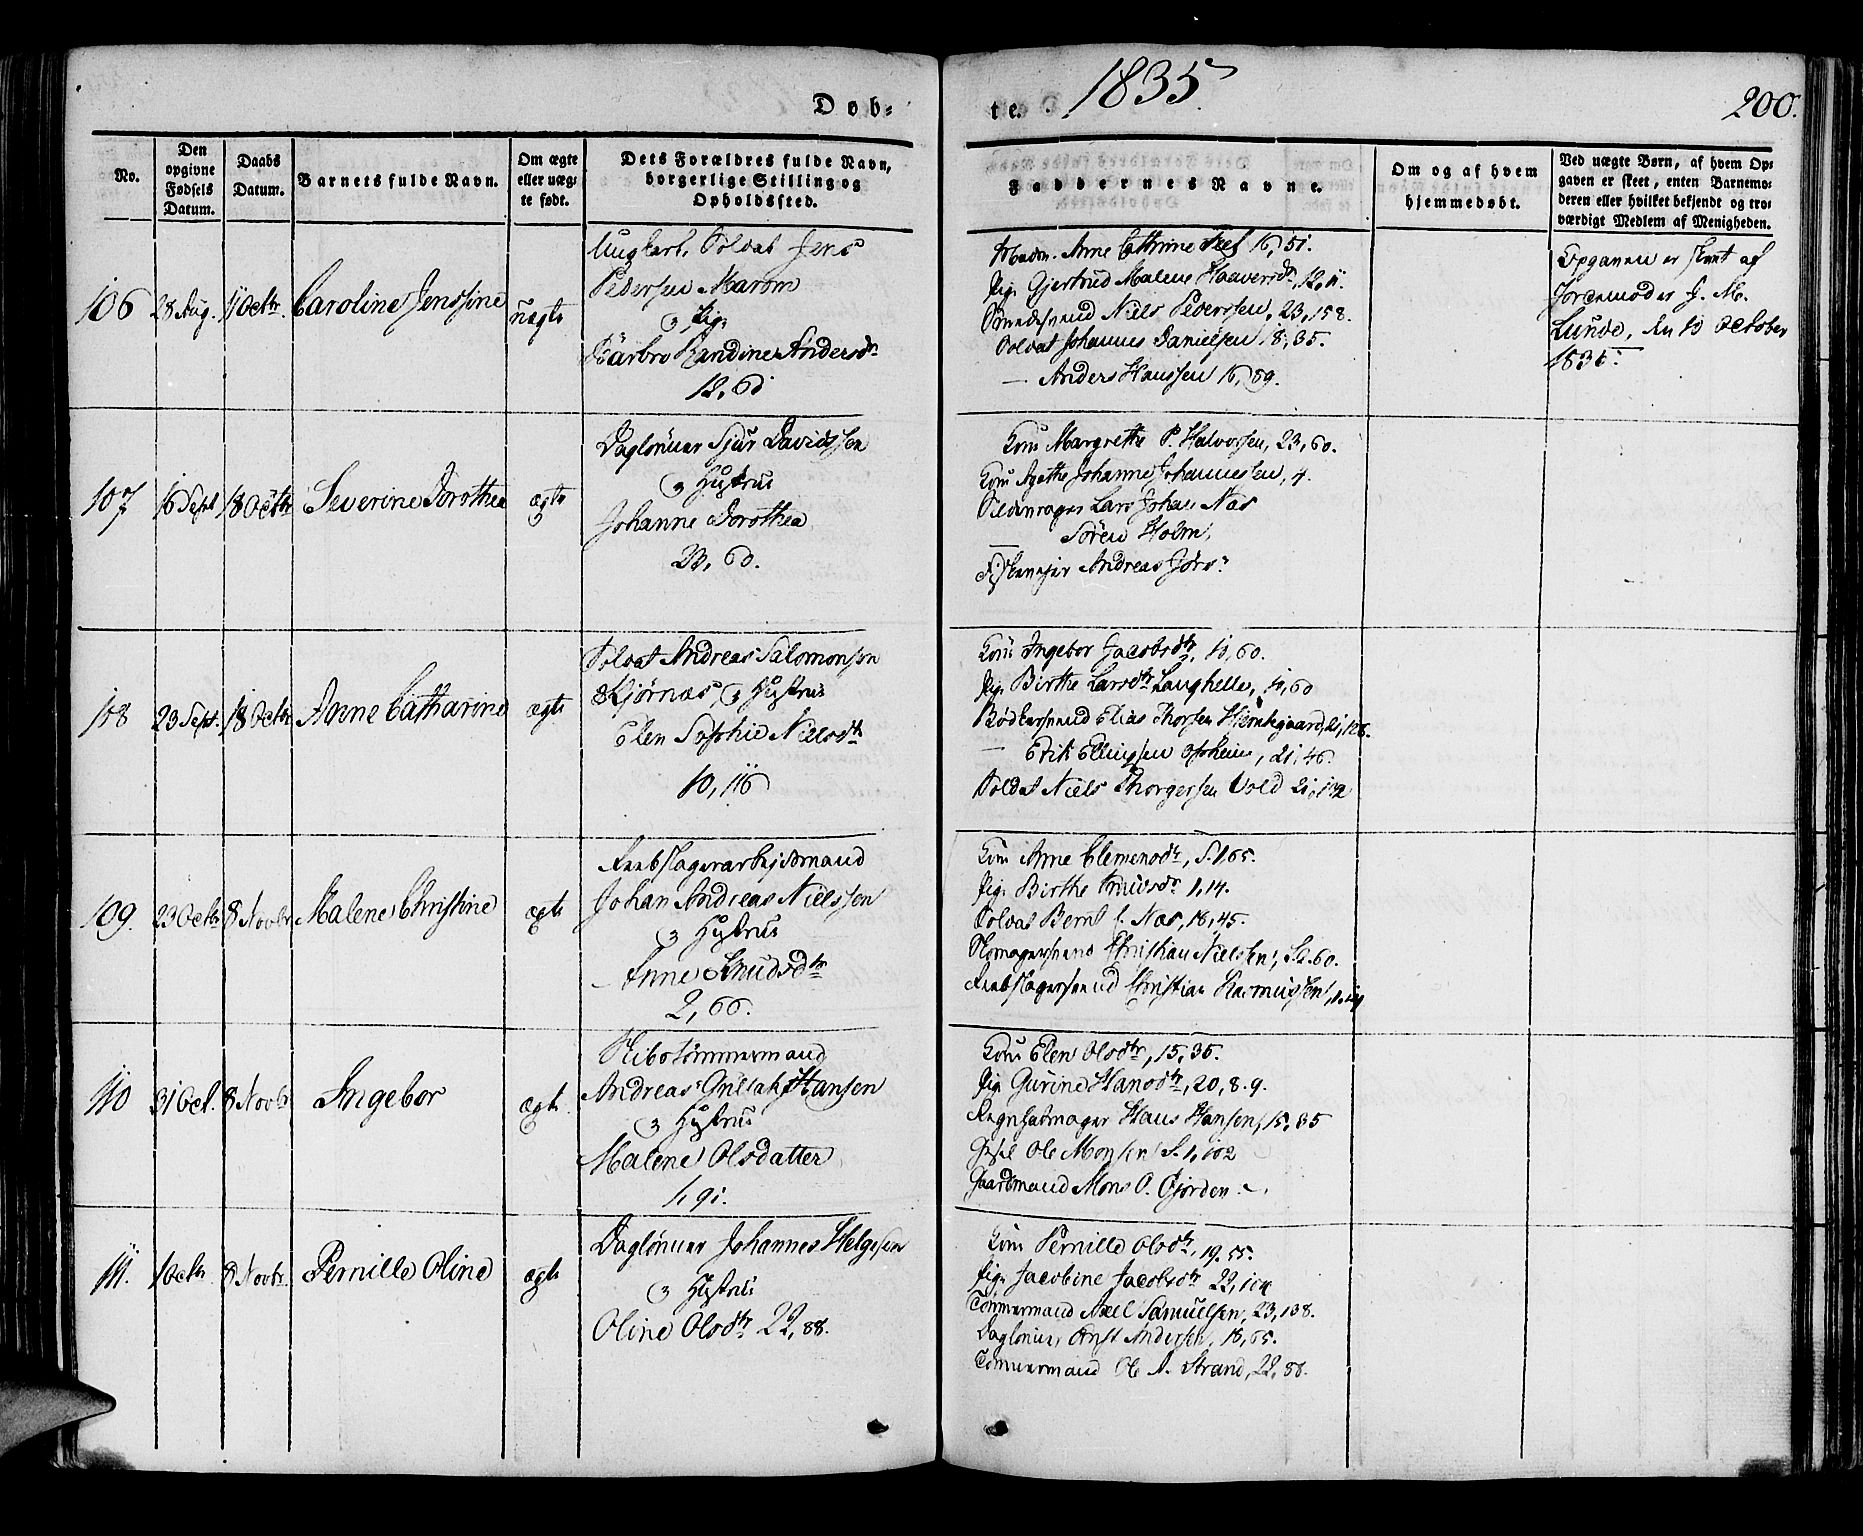 Døb-
te. 1835.
200.
No.
Den opgivne Fødsels Datum.
Daabs Datum.
Barnets fulde Navn.
Om ægte eller uægte født.
Dets Forældres fulde Navn, borgerlige Stilling og Opholdssted.
Faddernes Navne.
Om og af hvem hjemmedøbt.
Ved uægte Børn, af hvem Opgaven er skeet, enten Barnemoderen eller hvilket bekjendt og troværdigt Medlem af Menigheden.
106
28 Aug.
11 Octbr.
Caroline Jenssine
uægte
Ungkarl, Soldat Jens
Pedersen
& Pig.
Bandine Andersdr
12, 61
Madm. Anne Cathrine 16, 51.
Pig. Gjertrud Malene 12, 11.
Niels Pederssen, 23, 158.
Soldat Johannes Danielsen, 8, 35.
— Anders Hanssen 16, 89.
Opgaven er skeet af
Jordemoder J. M.
Lunde, den 10 October
1835.
107
16 Sept
18 Octbr
Severine Dorothea
ægte
Daglønner Sjur Davidssen
& Hustrue
Johanne Dorothea
23, 60.
Kone Margrethe P. Halvorsen, 23, 60.
Kone Agathe Johanne Johannessen, 4.
Lars Johan Næs
— Søren Holm,
Andreas Jørs.
108
23 Sept.
18 Octbr
Anne Catharine
ægte
Soldat Andreas Salomonsen
Kjørnæs, & Hustrue
Elen Sophie Nielsdtr
10, 116
Kone Ingebor Jacobsdtr, 10, 60.
Pig. Birthe Larsdtr Langhelle, 10, 60
Bødkersvend Elias Thorsen 21, 126.
— Erik Ellingsen Opheim, 21, 46.
Soldat Niels Thorgersen Vold 21, 132
109.
23 Octbr
8 Novbr
Malene Christine
ægte
Reebslager
Johan Andreas Nielssen
& Hustrue
Anne Knudsdtr
2, 66.
Kone Anne Clemensdtr, S. 1, 65.
Pig. Birthe Knudsdr 1, 14.
Soldat Bernt Næs, 18, 45.
Skomagersvend Christian Nielsen, 60.
Reebslagersvend Christian Rasmussen,
110
31 Oct.
8 Novbr
Ingebor
ægte
Skibstømmermand
Andreas Gullak Hansen
& Hustrue
Malene Olsdatter
1, 91.
Kone Elen Olsdtr, 15, 35.
Pig. Gurine Hansdtr, 20, 89.
Hans Hansen, 15, 35
Ole Monsen S. 1, 102
Gaardmand Mons O. Gjorden.
111.
1 Octbr
8 Novbr.
Pernille Oline
ægte
Daglønner Johannes Helgesen
& Hustrue
Oline Olsdtr 22, 88.
Kone Pernille Olsdtr, 19, 55.
Pig. Jacobine Jacobsdtr 22, 104
Tømmermand Axel Samuelsen, 23, 138.
Daglønner Ernst Andersen, 18, 65.
Tømmermand Ole A. Strand, 22, 88.